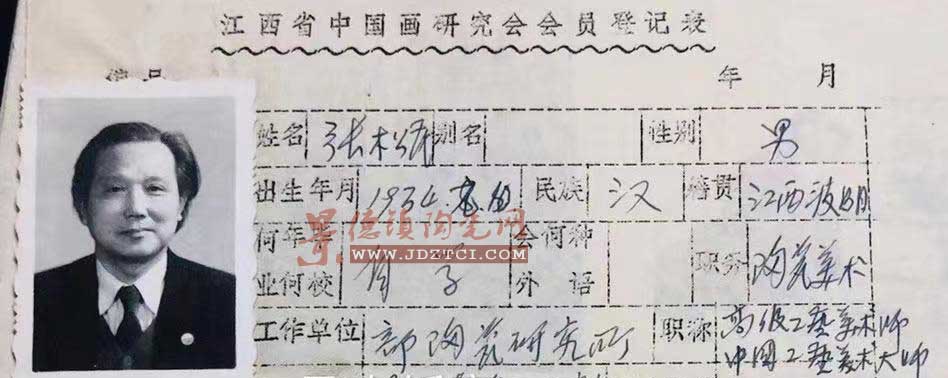 江西省中国画研究会会员登记表
年 月
姓名 张松茂 别名 性别 男
出生年月 1934. 民族 汉 籍贯 江西波阳
何年毕 会何种
业何校 自学 外语 职务 陶瓷美术
景德镇陶瓷网
WWW.JDZTCI.COM
工作单位 部陶瓷研究所 职称 高级工艺美术师
中国工艺美术大师